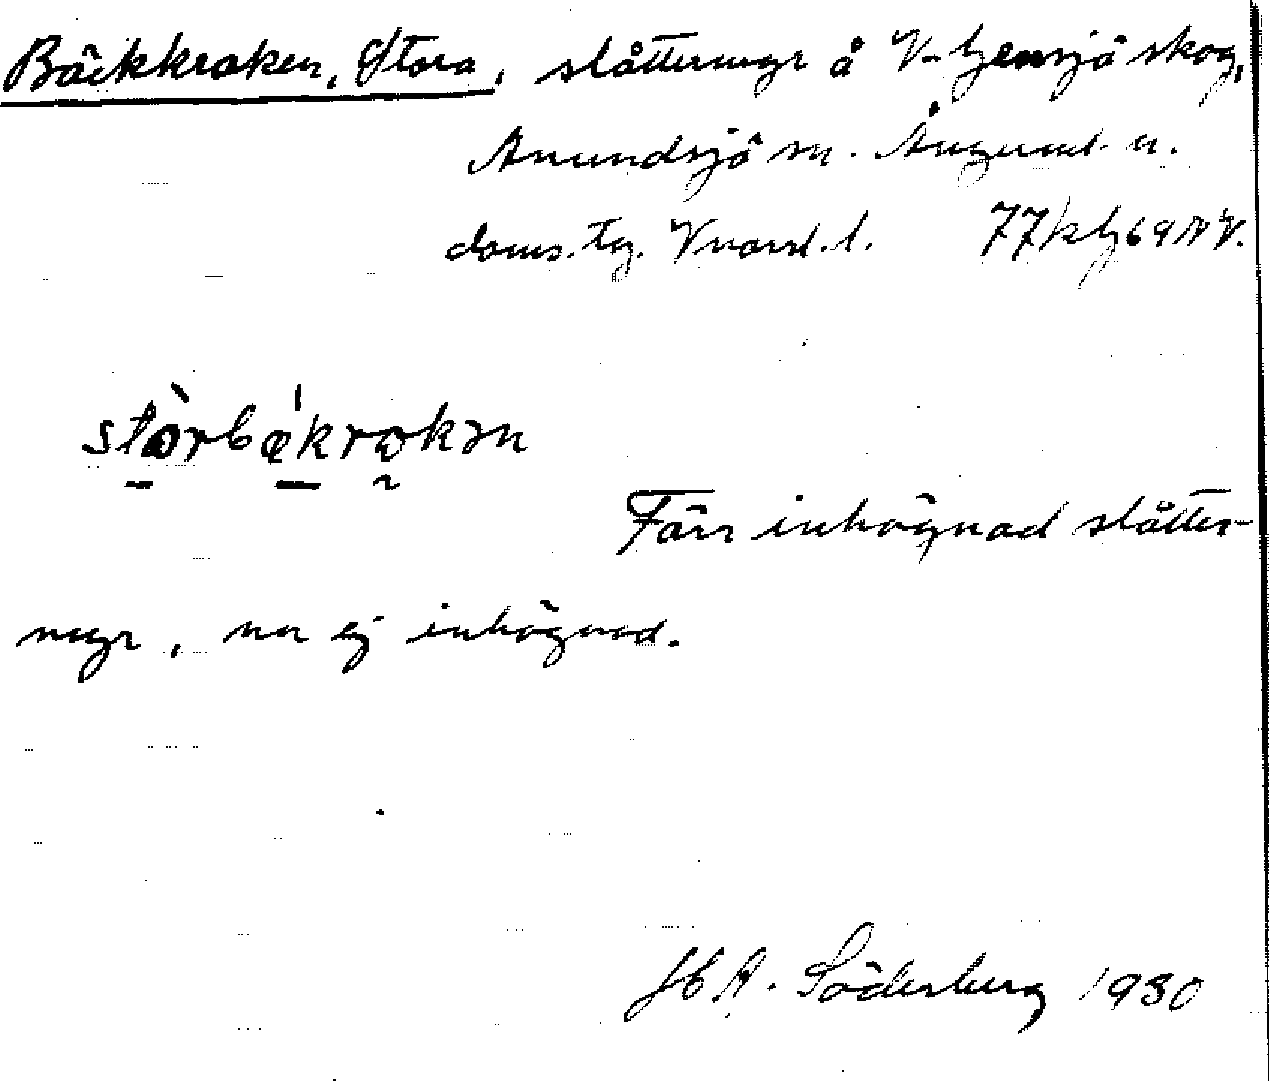 Bäckkroken, Stora, slåttermyr å V. Gensjö skog,
Anundsjö sn. Ångerml. n.
doms. tg. Vnorrl. l. 77
stòrbækrokən
Förr inhägnad slåtter-
myr, nu ej inhägnad.
H A. Söderberg 1930